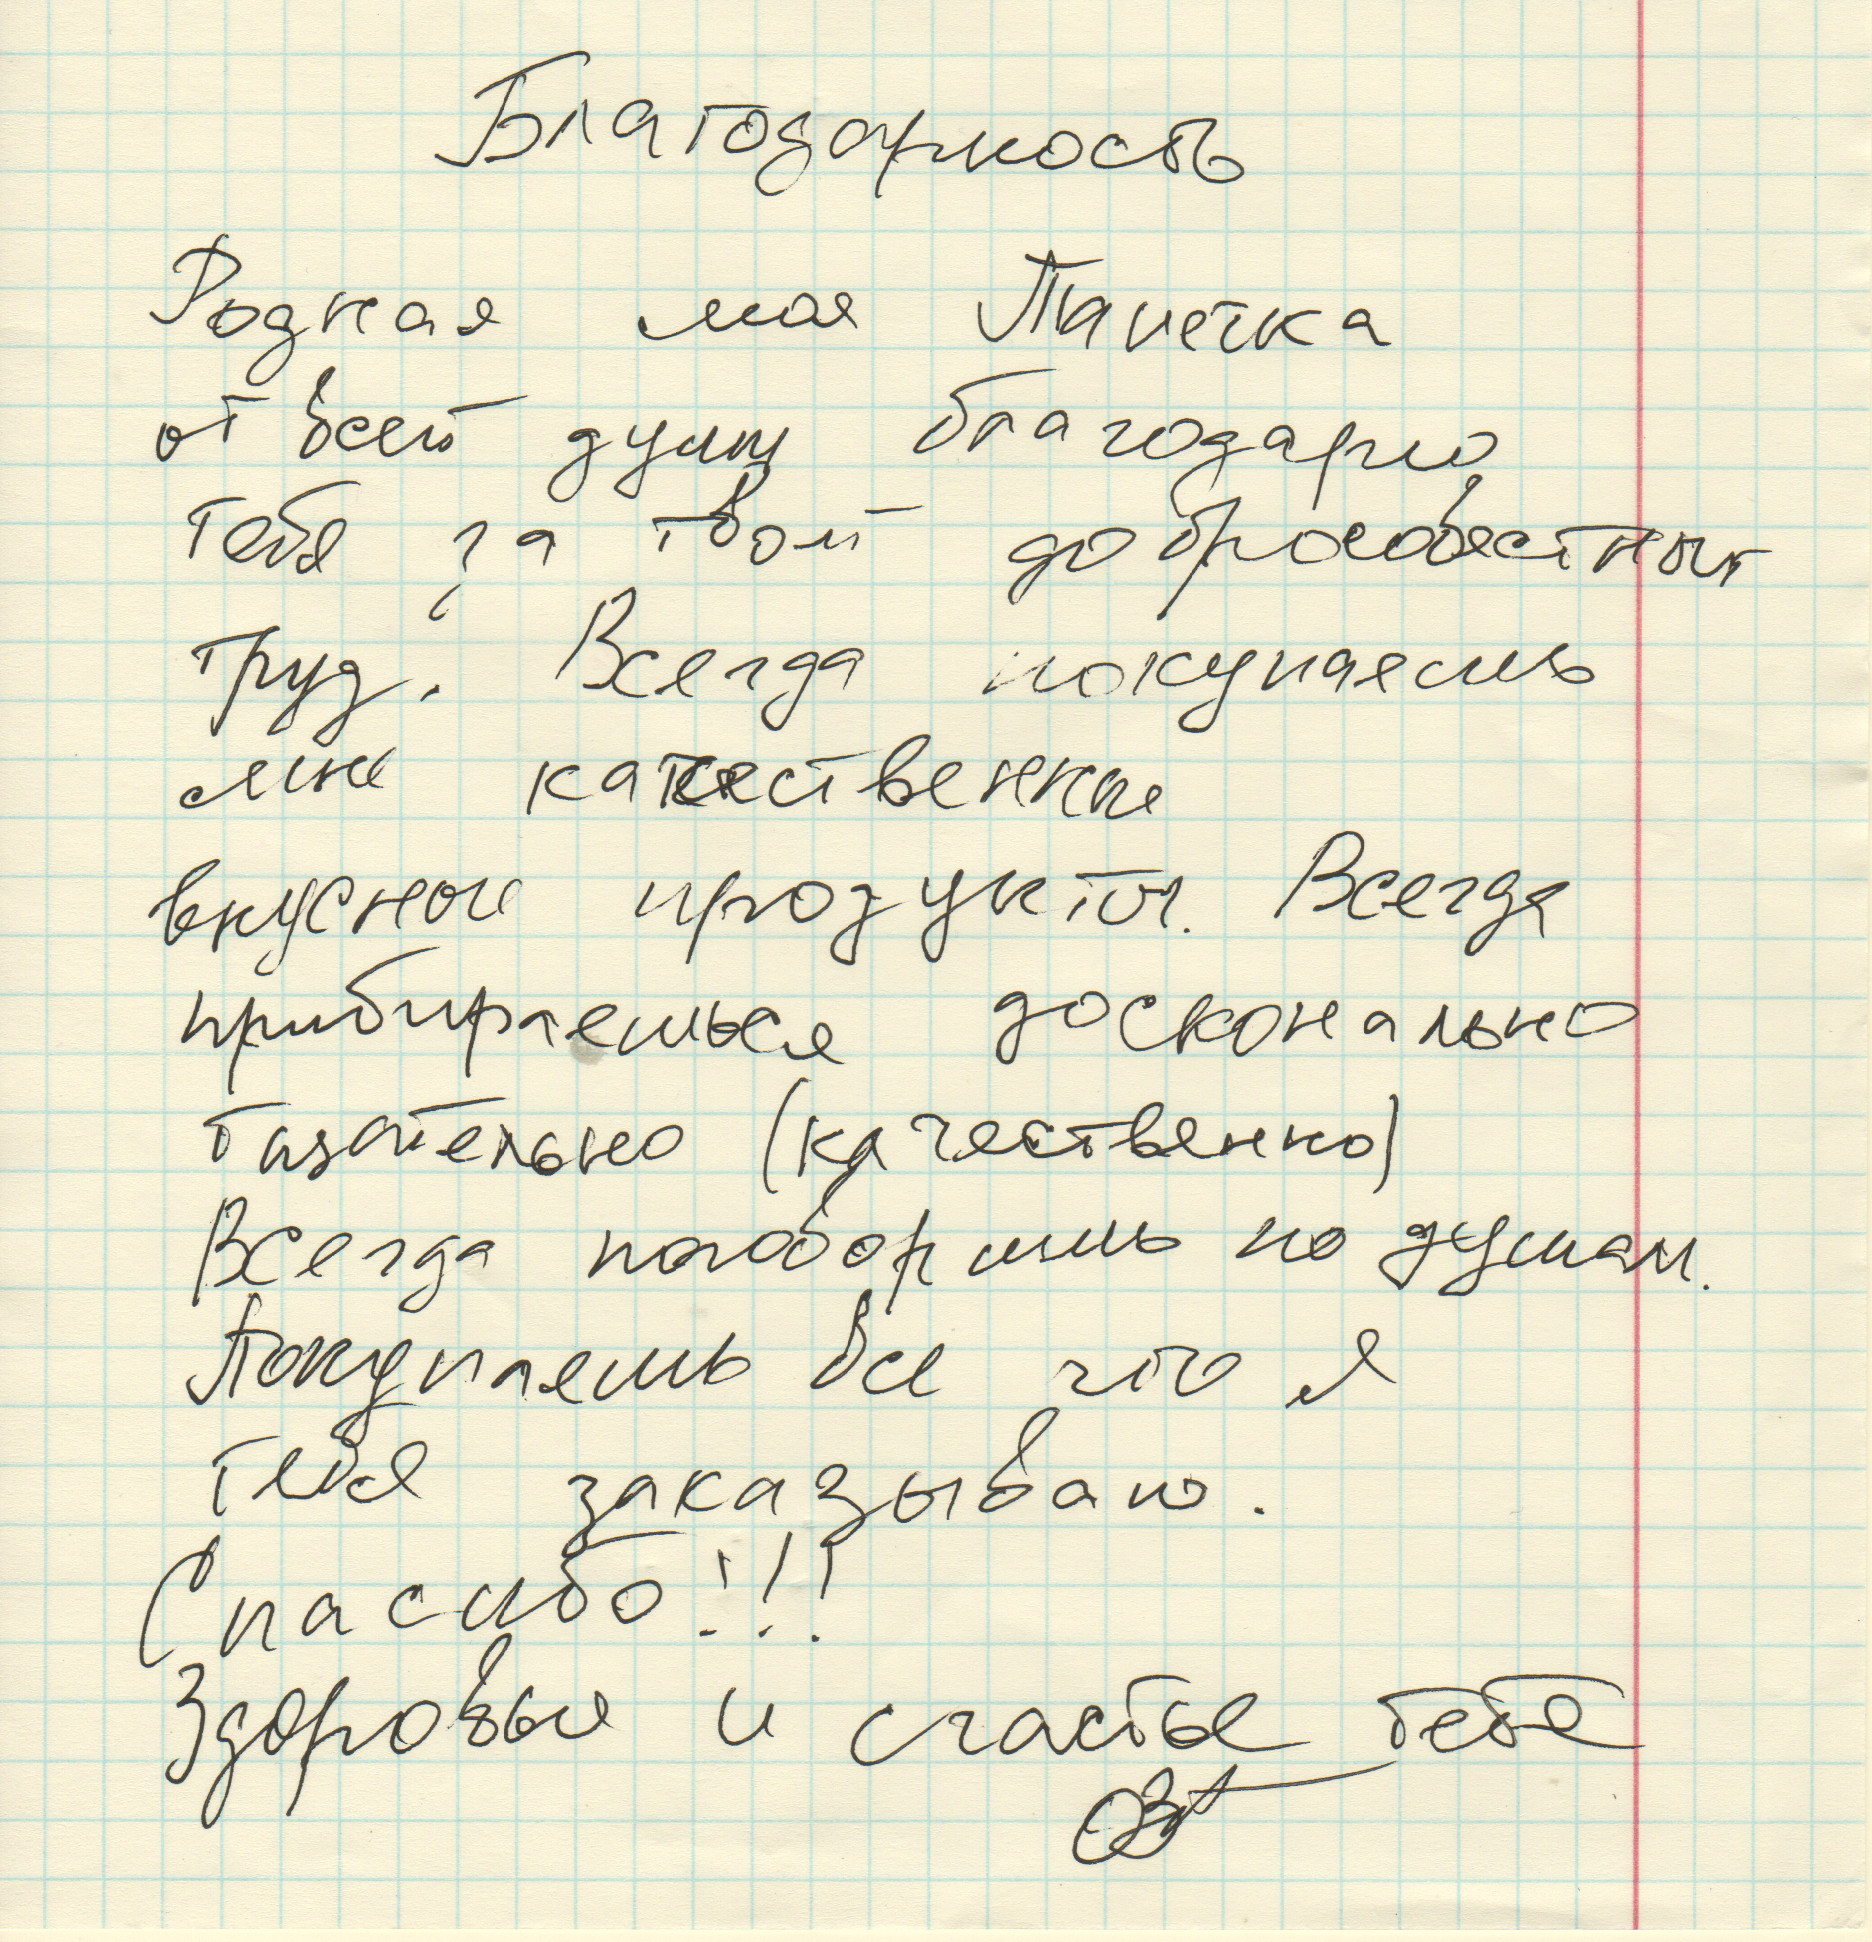 Благодарность
Родная моя Танечка
от всей душы благодарю
тебя за твой добросовестный
труд. Всегда покупаешь
мне качественные
вкусные продукты. Всегда
прибираешься досконально
тщательно (качественно)
Всегда поговоришь по душам.
Покупаешь все что я
тебе заказываю.
Спасибо!!!
Здоровья и счастье тебе